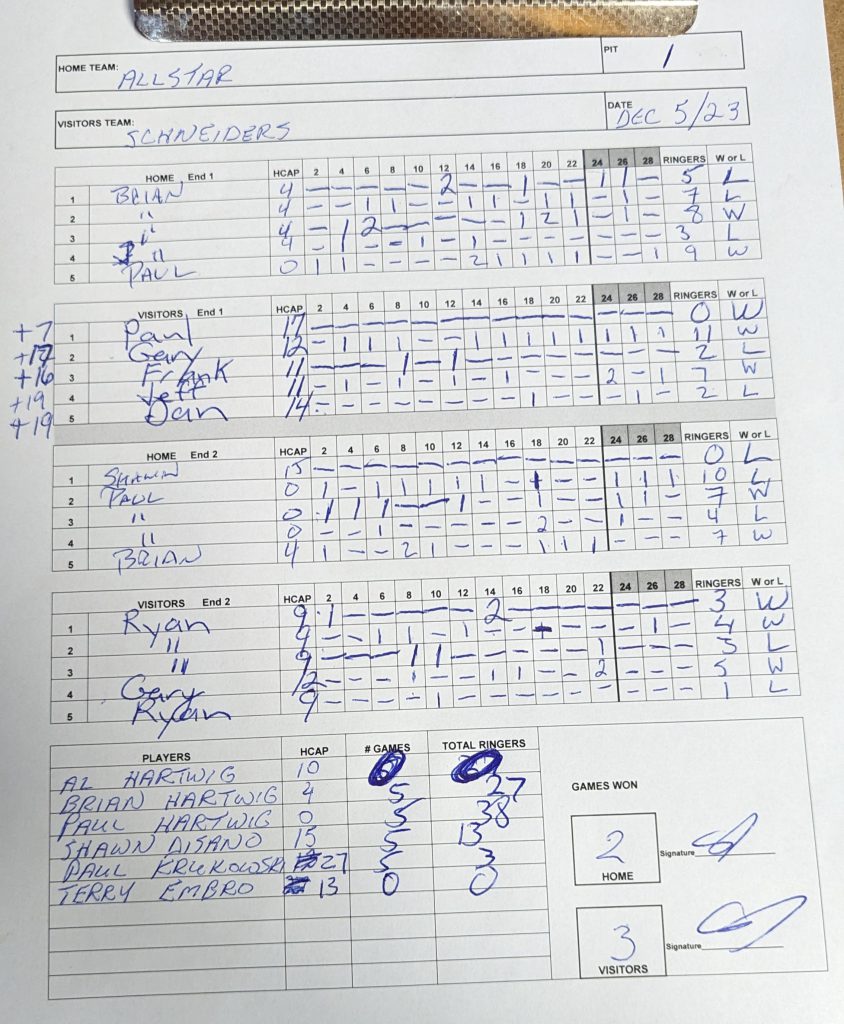 HOME TEAM: ALLSTAR PIT 1
VISITORS TEAM: SCHNEIDERS DATE DEC 5/23
HOME End 1 HCAP 2 4 6 8 10 12 14 16 18 20 22 24 26 28 RINGERS W or L
1 BRIAN 4 – – – – – 2 – – 1 – – 1 1 – 5 L
2 " 4 – – 1 1 – – 1 1 – 1 1 – 1 – 7 L
3 " 4 – 1 2 – – – – – 1 2 1 – 1 – 8 W
4 " 4 – 1 – – 1 – 1 – – – – – – – 3 L
5 PAUL 0 1 1 – – – – 2 1 1 1 1 – – 1 9 W
VISITORS End 1 HCAP 2 4 6 8 10 12 14 16 18 20 22 24 26 28 RINGERS W or L
+7 1 Paul 17 – – – – – – – – – – – – – – 0 W
+12 2 Gary 12 – 1 1 1 – – 1 1 1 1 1 1 1 1 11 W
+16 3 Frank 11 – – – 1 – 1 – – – – – – – – 2 L
+19 4 Jeff 11 – 1 – 1 – 1 – 1 – – – 2 – 1 7 W
+19 5 Dan 14 – – – – – – – – 1 – – – 1 – 2 L
HOME End 2 HCAP 2 4 6 8 10 12 14 16 18 20 22 24 26 28 RINGERS W or L
1 SHAWN 15 – – – – – – – – – – – – – – 0 L
2 PAUL 0 1 – 1 1 1 1 1 – 1 – – 1 1 1 10 L
3 " 0 1 1 1 – – 1 – – 1 – – 1 1 – 7 W
4 " 0 – – 1 – – – – – 2 – – 1 – – 4 L
5 BRIAN 4 1 – – 2 1 – – – 1 1 1 – – – 7 W
VISITORS End 2 HCAP 2 4 6 8 10 12 14 16 18 20 22 24 26 28 RINGERS W or L
1 Ryan 9 1 – – – – – 2 – – – – – – – 3 W
2 " 9 – – 1 1 – 1 – – – – – – 1 – 4 W
3 " 9 – – – 1 1 – – – – – 1 – – – 3 L
4 Gary 12 – – – 1 – – 1 1 – – 2 – – – 5 W
5 Ryan 9 – – – – 1 – – – – – – – – – 1 L
PLAYERS HCAP # GAMES TOTAL RINGERS
AL HARTWIG 10
BRIAN HARTWIG 4 5 27
PAUL HARTWIG 0 5 38
SHAWN DISANO 15 5 13
PAUL KRUKOWSKI 27 5 3
TERRY EMBRO 13 0 0
GAMES WON
2 HOME Signature
3 VISITORS Signature